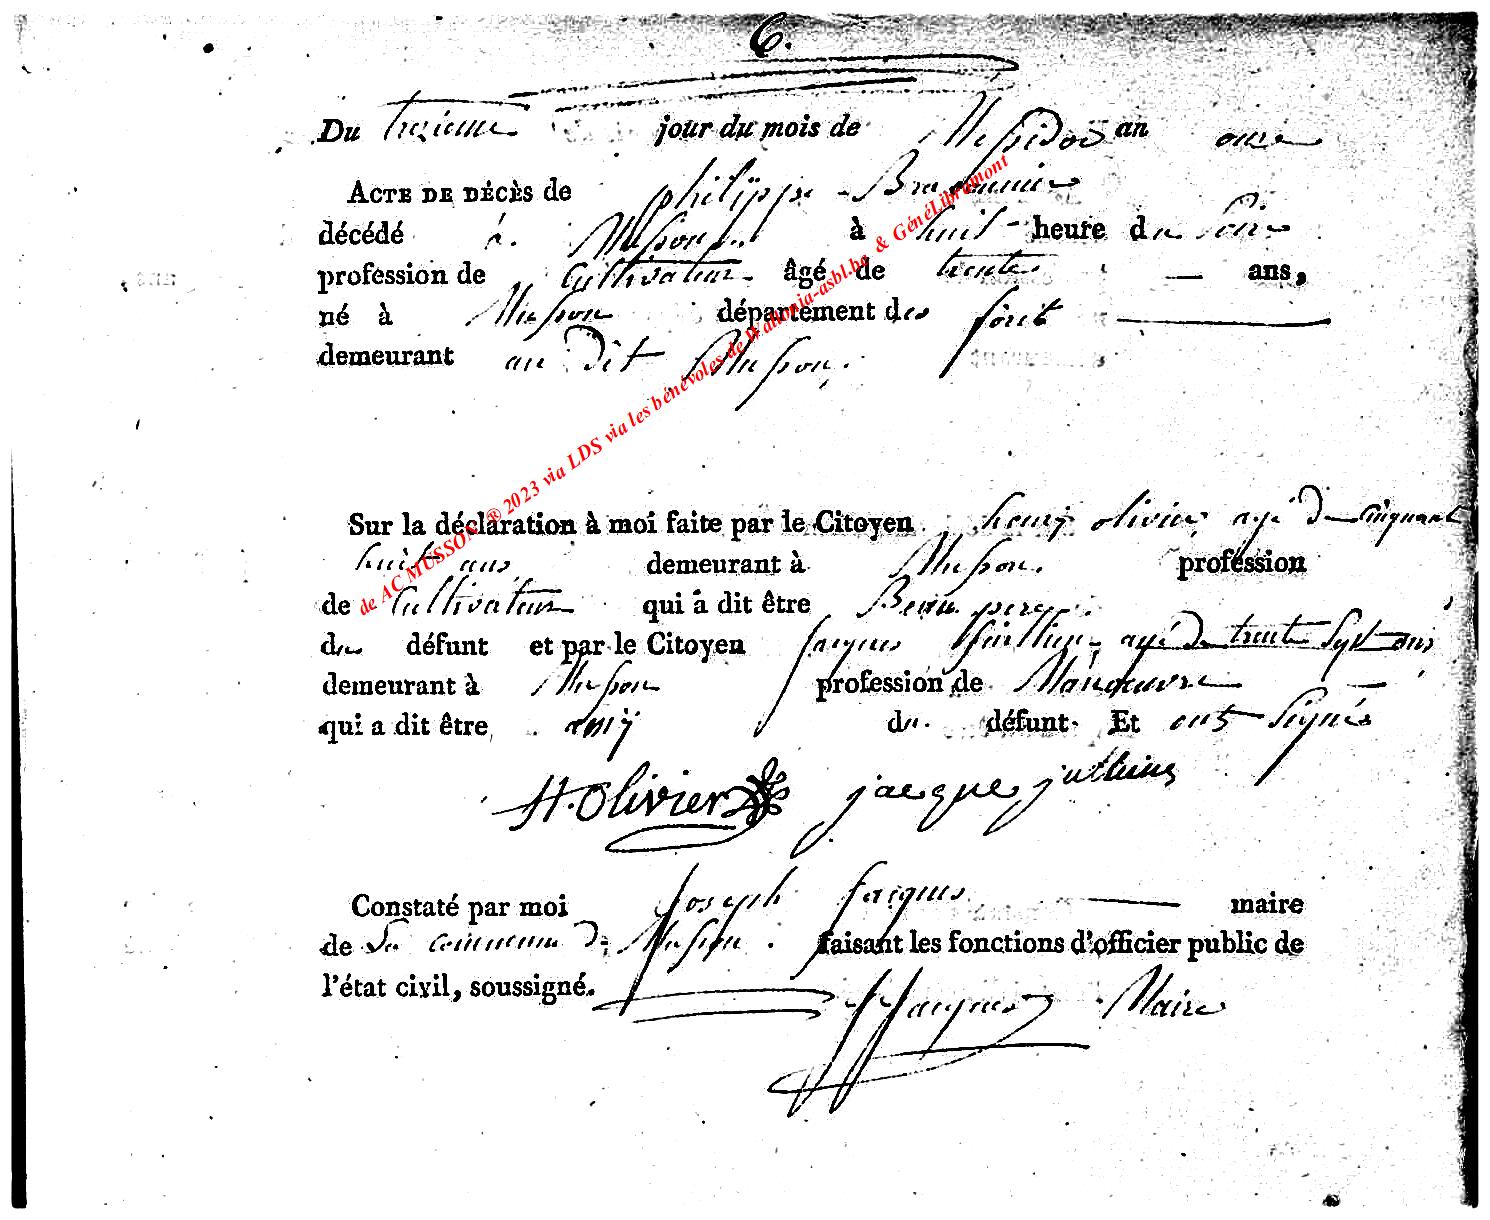 6.
Du trezieme jour du mois de Messidor an onze
ACTE DE DÉCÈS de philippe
décédé à Musson à huit heure du soir
profession de Cultivateur âgé de trente — ans,
né à Musson département des forêts
demeurant au dit Musson.
Sur la déclaration à moi faite par le Citoyen henry olivier agé de cinquant
huit ans demeurant à Musson. profession
de Cultivateur qui a dit être Beau pere
du défunt et par le Citoyen Jacques agé de trente sept ans
demeurant à Musson profession de Manoeuvre
qui a dit être amÿ du défunt Et ont signés
H. Olivier jacque
Constaté par moi Joseph Jacques maire
de La commune de Musson. faisant les fonctions d'officier public de
l'état civil, soussigné.
JJacques Maire
de AC MUSSON ® 2023 via LDS via les bénévoles de Wallonia-asbl.be & GénéLibramont